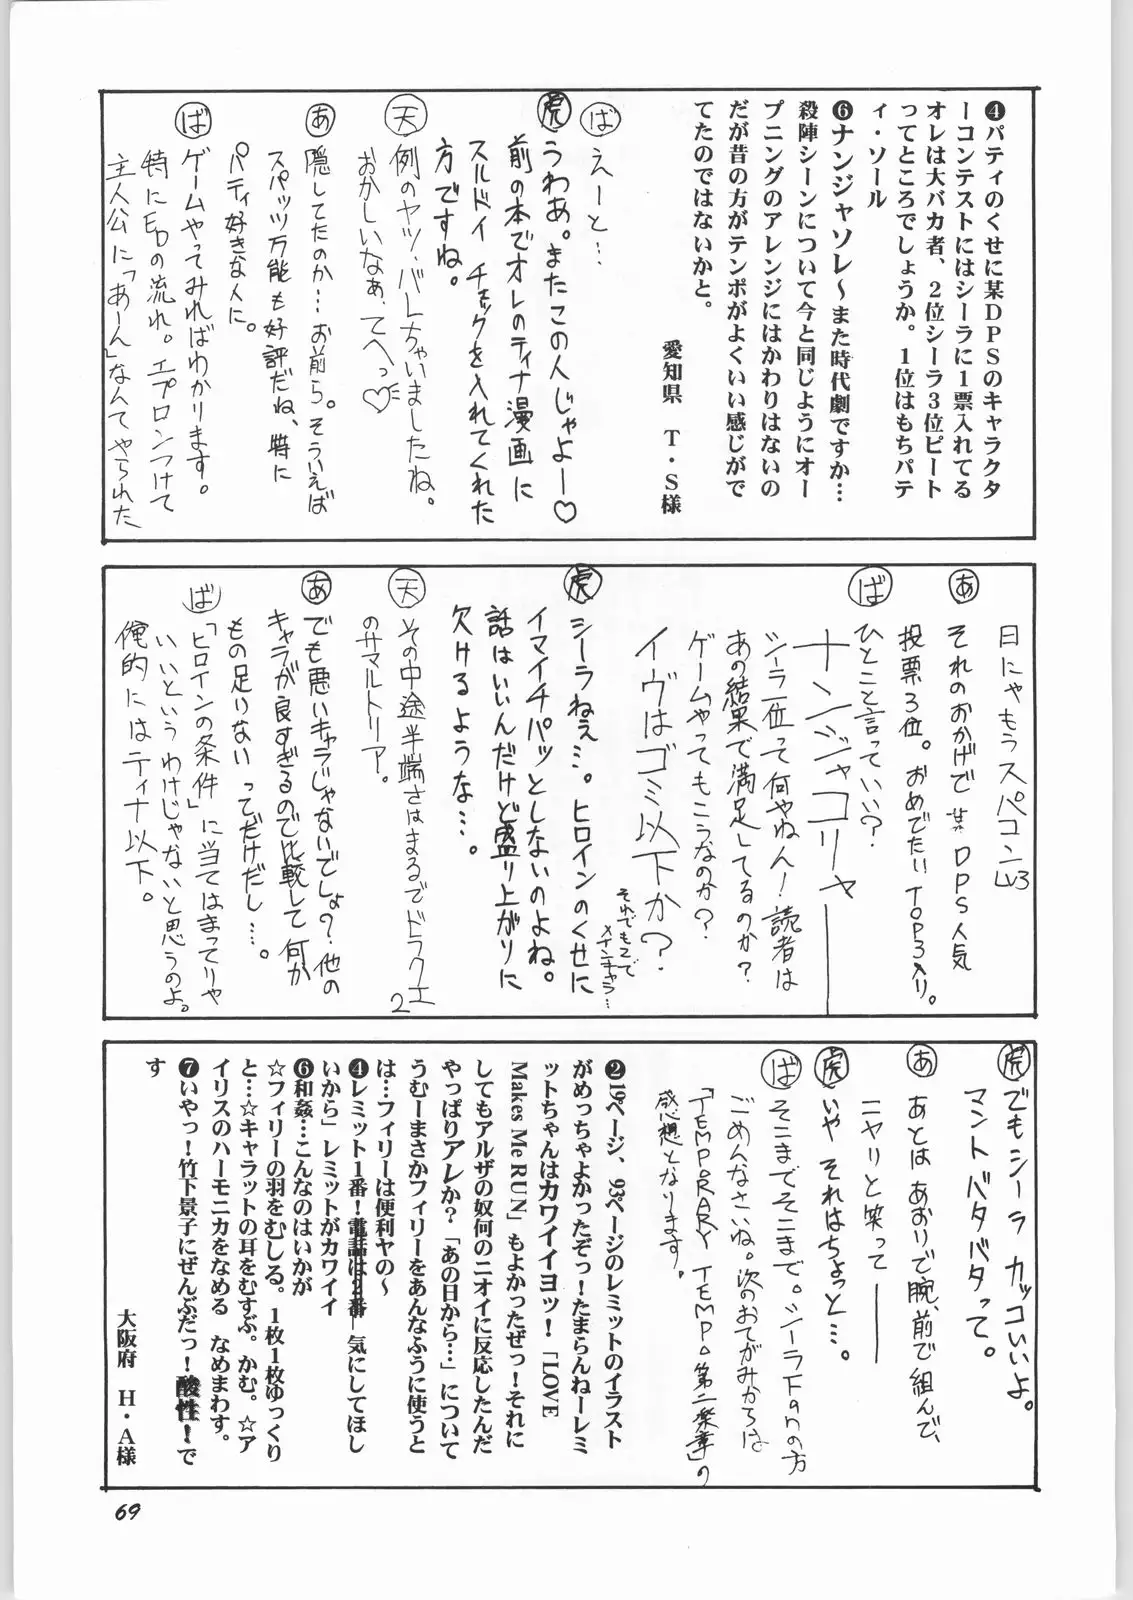 ❹パティのくせに某DPSのキャラクタ
ーコンテストにはシーラに1票入れてる
オレは大バカ者、2位シーラ3位ピート
ってところでしょうか。1位はもちパテ
ィ・ソール
❻ナンジャソレ～また時代劇ですか…
殺陣シーンについて今と同じようにオー
プニングのアレンジにはかわりはないの
だが昔の方がテンポがよくいい感じがで
てたのではないかと。
愛知県 T・S様
ば えーと…
虎 うわあ。またこの人じゃよー♡
前の本でオレのティナ漫画に
スルドイ チェックを入れてくれた
方ですね。
天 例のヤツ・バレちゃいましたね。
おかしいなぁ、てへっ♡
あ 隠してたのか…お前ら。そういえば
スパッツ万能も好評だね、特に
パティ好きな人に。
ば ゲームやってみればわかります。
特にEDの流れ。エプロンつけて
主人公に「あーん」なんてやられた
日にゃもうスパコンLV3
あ それのおかげで某DPS人気
投票3位。おめでたいTOP3入り。
ば ひとこと言っていい?
ナンジャコリャ――
シーラ一位って何やねん!読者は
あの結果で満足してるのか?
ゲームやってもこうなのか?
イヴはゴミ以下か?
それでもえで
メインキャラ…
虎 シーラねぇ…。ヒロインのくせに
イマイチパッとしないのよね。
話はいいんだけど盛り上がりに
欠けるような…。
天 その中途半端さはまるでドラクエ2
のサマルトリア。
あ でも悪いキャラじゃないでしょ?他の
キャラが良すぎるので比較して何か
もの足りないってだけだし…。
ば 「ヒロインの条件」に当てはまってりゃ
いいというわけじゃないと思うのよ。
俺的にはティナ以下。
虎 でもシーラ カッコいいよ。
マントバタバタって。
あ あとはあおりで腕、前で組んで、
ニヤリと笑って――
虎 いや それはちょっと…。
ば そこまでそこまで。シーラFanの方
ごめんなさいね。次のおてがみからは
「TEMPORARY TEMPO第二楽章」の
感想となります。
❷19ページ、93ページのレミットのイラスト
がめっちゃよかったぞっ!たまらんねーレミ
ットちゃんはカワイイヨッ!「LOVE
Makes Me RUN」もよかったぜっ!それに
してもアルザの奴何のニオイに反応したんだ
やっぱりアレか?「あの日から…」について
うむーまさかフィリーをあんなふうに使うと
は…フィリーは便利ヤの～
❹レミット1番!電話は2番―気にしてほし
いから」レミットがカワイイ
❻和姦…こんなのはいかが
☆フィリーの羽をむしる。1枚1枚ゆっくり
と…☆キャラットの耳をむすぶ。かむ。☆ア
イリスのハーモニカをなめる なめまわす。
❼いやっ!竹下景子にぜんぶだっ!酸性!で
す
大阪府 H・A様
69